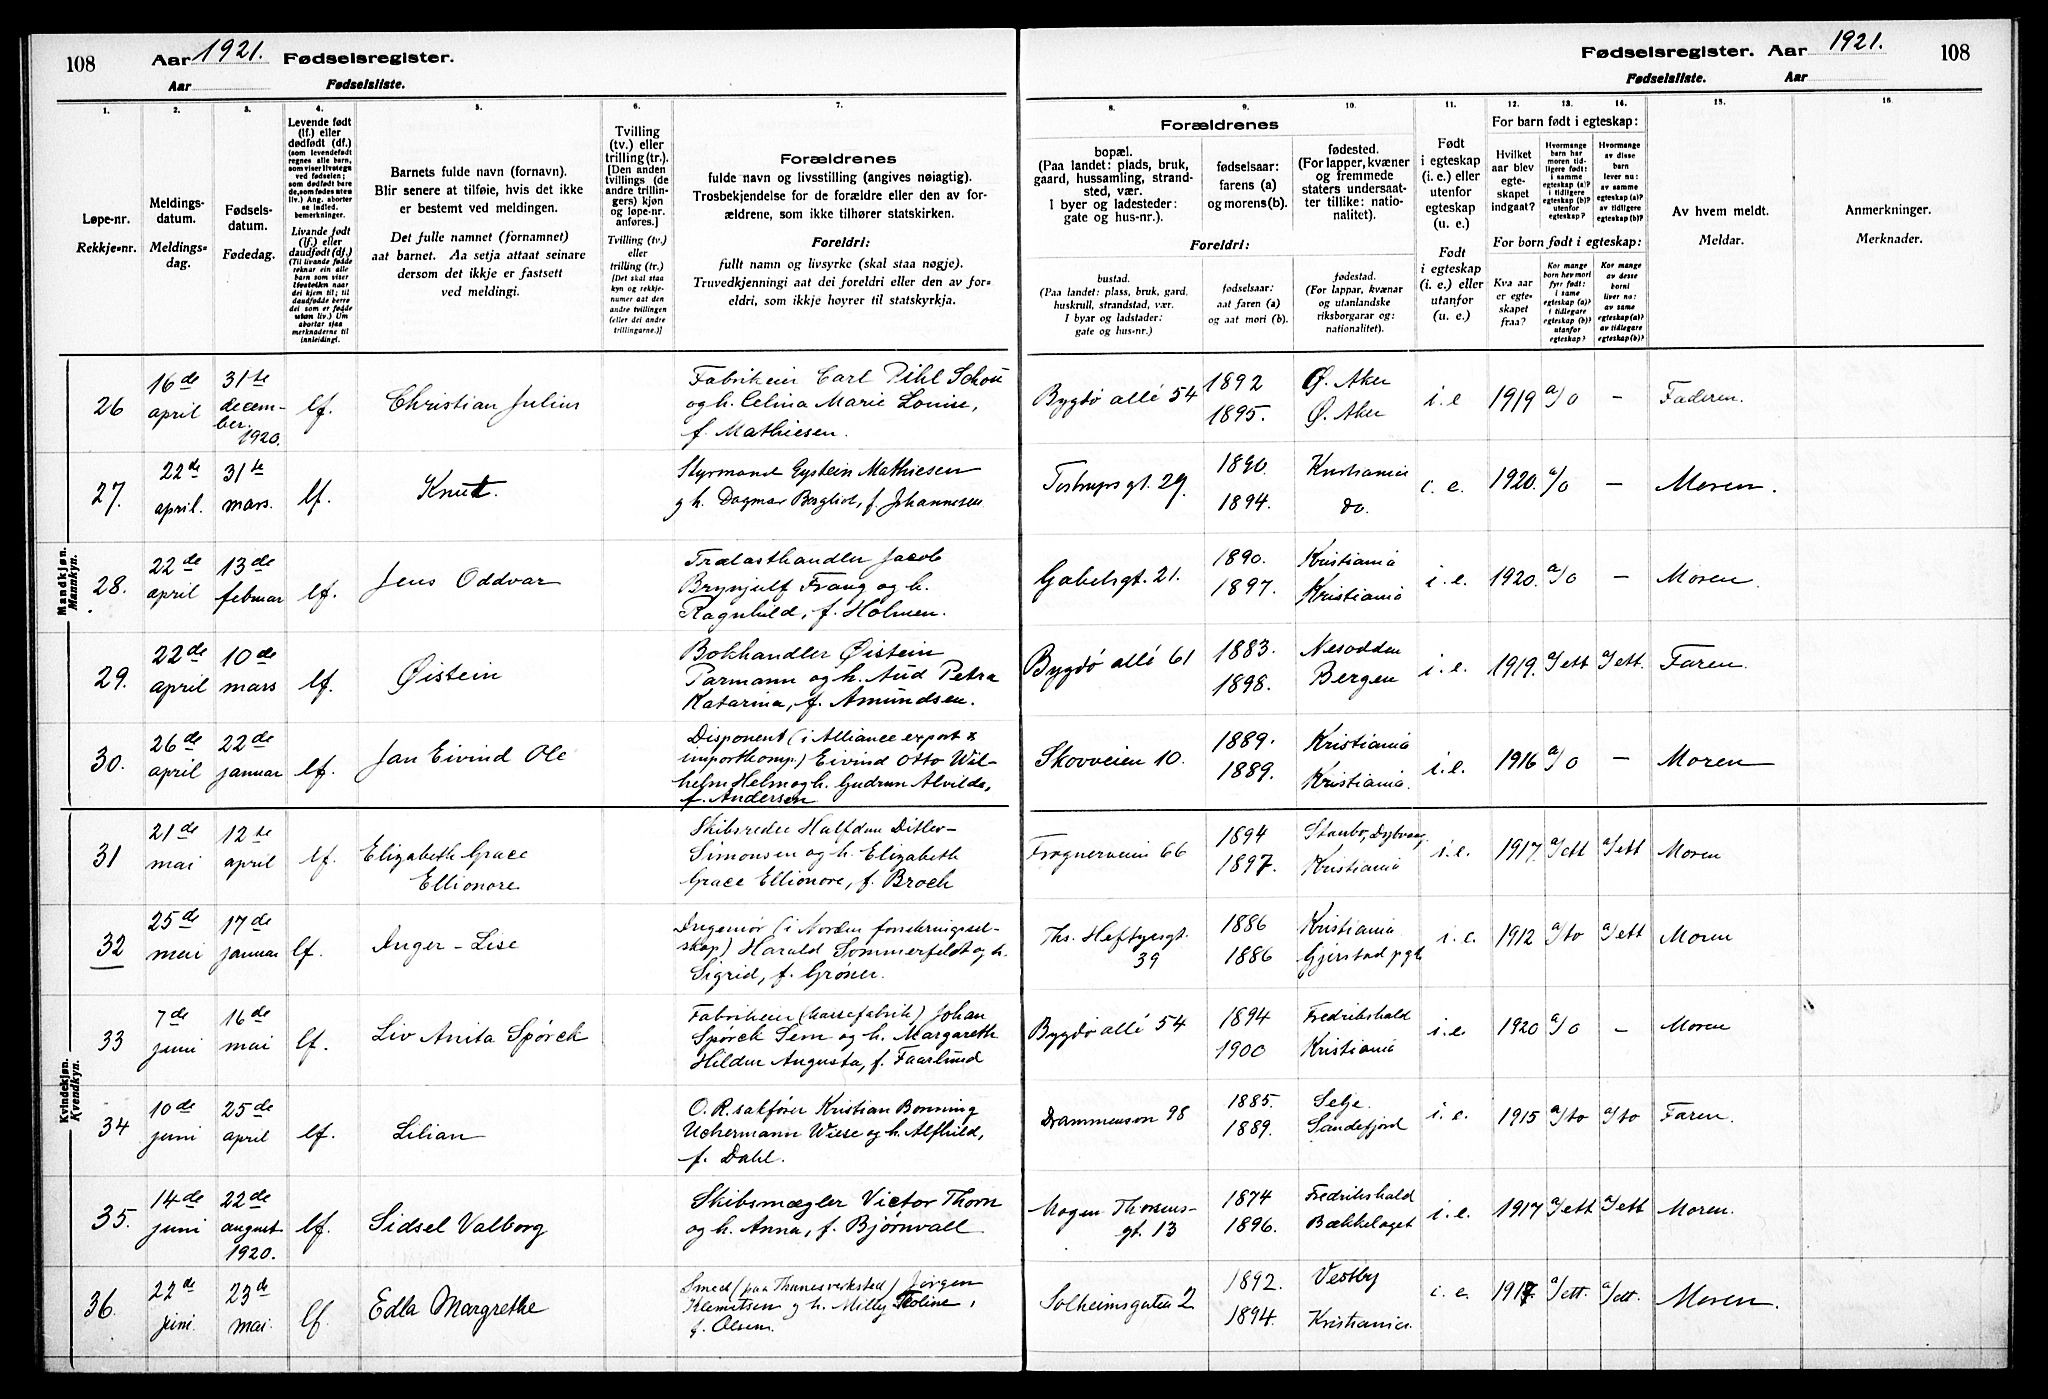 108
Aar 1921. Fødselsregister.
Aar Fødselsliste.
Fødselsregister. Aar 1921.
108
Fødselsliste. Aar
1.
Løpe-nr.
Rekkje-nr.
2.
Meldings-
datum.
Meldings-
dag.
3.
Fødsels-
datum.
Fødedag.
4.
Levende født
(lf.) eller
dødfødt (df.)
Livande født
(lf.) eller
daudfødt (df.)
5.
Barnets fulde navn (fornavn).
Blir senere at tilføie, hvis det ikke
er bestemt ved meldingen.
Det fulle namnet (fornamnet)
aat barnet. Aa setja attaat seinare
dersom det ikkje er fastsett
ved meldingi.
6.
Tvilling
(tv.) eller
trilling (tr.).
[Den anden
tvillings (de
andre trillin-
gers) kjøn
og løpe-nr.
anføres.]
Tvilling (tv.)
eller
trilling (tr.)
[Det skal staa
kyn og rekkje-
numer aat den
andre tvillingen
(eller dei andre
trillingarne.)]
7.
Forældrenes
fulde navn og livsstilling (angives nøiagtig).
Trosbekjendelse for de forældre eller den av for-
ældrene, som ikke tilhører statskirken.
Foreldri:
fullt namn og livsyrke (skal staa nøgje).
Truvedkjenningi aat dei foreldri eller den av for-
eldri, som ikkje høyrer til statskyrkja.
Forældrenes
8.
bopæl.
(Paa landet: plads, bruk,
gaard, hussamling, strand-
sted, vær.
I byer og ladesteder:
gate og hus-nr.).
9.
fødselsaar:
farens (a)
og morens (b).
10.
fødested.
(For lapper, kvæner
og fremmede
staters undersaat-
ter tillike: natio-
nalitet).
Foreldri:
bustad.
(Paa landet: plass, bruk, gard,
huskrull, strandstad, vær.
I byar og ladstader:
gate og hus-nr.)
fødselsaar:
aat faren (a)
og aat mori (b).
fødestad.
(For lappar, kvænar
og utanlandske
riksborgarar og:
nationalitet).
11.
Født
i egteskap
(i. e.) eller
utenfor
egteskap
(u. e.)
Født
i egteskap
(i. e.) eller
utanfor
egteskap
(u. e.)
For barn født i egteskap:
12.
Hvilket
aar blev
egte-
skapet
indgaat?
13.
Hvormange
barn har
moren tid-
ligere født:
i samme
egteskap (a)?
i tidligere
egteskap (b)?
utenfor
egteskap?
14.
Hvormange
av disse
barn
lever nu:
av samme
egteskap (a)?
av tidligere
egteskap (b)?
For born født i egteskap:
Kva aar
er egte-
skapet
fraa?
15.
Av hvem meldt.
Meldar.
16.
Anmerkninger.
Merknader.
Mandkjøn.
Mannkyn.
26 16de april 31te december. 1920. lf. Christian Julius Fabrikeier Carl Pihl Schou
og h. Celina Marie Louise,
f. Mathiesen. Bygdø allé 54 1892 1895. Ø. Aker Ø. Aker i. e 1919 a/o – Faderen.
27. 22de april. 31te mars. lf. Knut. Styrmand Eystein Mathiesen
og h. Dagmar Bergliot, f. Johannesen Tostrupsgt. 29. 1890. 1894. Kristiania do. i. e. 1920. a/o – Moren.
28. 22de april 13de februar lf. Jens Oddvar Trælasthandler Jacob
Brynjulf Frang og h.
Ragnhild, f. Holmen. Gabelsgt. 21. 1890. 1897. Kristiania Kristiania i. e. 1920. a/o – Moren
29. 22de april 10de mars lf. Øistein Bokhandler Øistein
Parmann og h. Aud Petra
Katarina, f. Amundsen. Bygdø allé 61 1883. 1898. Nesodden Bergen i. e. 1919. a/ett a/ett. Faren.
30. 26de april 22de januar lf. Jan Eivind Ole Disponent (i Alliance export &
importkomp.) Eivind Otto Wil-
helm Helm og h. Gudrun Alvilde,
f. Andersen Skovveien 10. 1889. 1889. Kristiania Kristiania. i. e. 1916 a/o – Moren
Kvindekjøn.
Kvendkyn.
31 21de mai 12te april lf. Elizabeth Grace
Ellionore Skibsreder Halfdan Ditlev-
Simonsen og h. Elizabeth
Grace Ellionore, f. Broch Frognerveien 66 1894 1897. Kristiania i. e. 1917. a/ett a/ett Moren
32 25de mai 17de januar lf. Inger-Lise Ingeniør (i Norden forsikringssel-
skap) Harald Sommerfeldt og h.
Sigrid, f. Grøner. Ths. Heftyesgt.
39 1886 1886 Kristiania Gjerstad pgd i. e. 1912 a/to a/ett Moren
33 7de juni 16de mai lf. Liv Anita Spørck Fabrikeier Johan
Spørck Sem og h. Margareth
Hildur Augusta, f. Faarlund Bygdø allé 54 1894 1900 Fredrikshald Kristiania i. e 1920 a/o – Moren
34 10de juni 25de april lf. Lilian O. R. sakfører Kristian Bonning
Uchermann Wiese og h. Alfhild,
f. Dahl. Drammensvn 98 1885. 1889. Selje. Sandefjord i. e. 1915 a/to a/to Faren.
35. 14de juni 22de august 1920. lf. Sidsel Valborg Skibsmægler Victor Thorn
og h. Anna, f. Bjørnvall Mogen Thorsens-
gt. 13 1874 1896. Fredrikshald Bækkelaget i. e. 1917 a/ett a/ett Moren.
36. 22de juni. 23de mai. lf. Edla Margrethe Smed (paa Thunesverksted) Jørgen
Klemetsen og h. Milly Teoline,
f. Olsen. Solheimsgaten 2 1892. 1894. Vestby Kristiania. i. e. 1917. a/ett. a/ett. Moren.